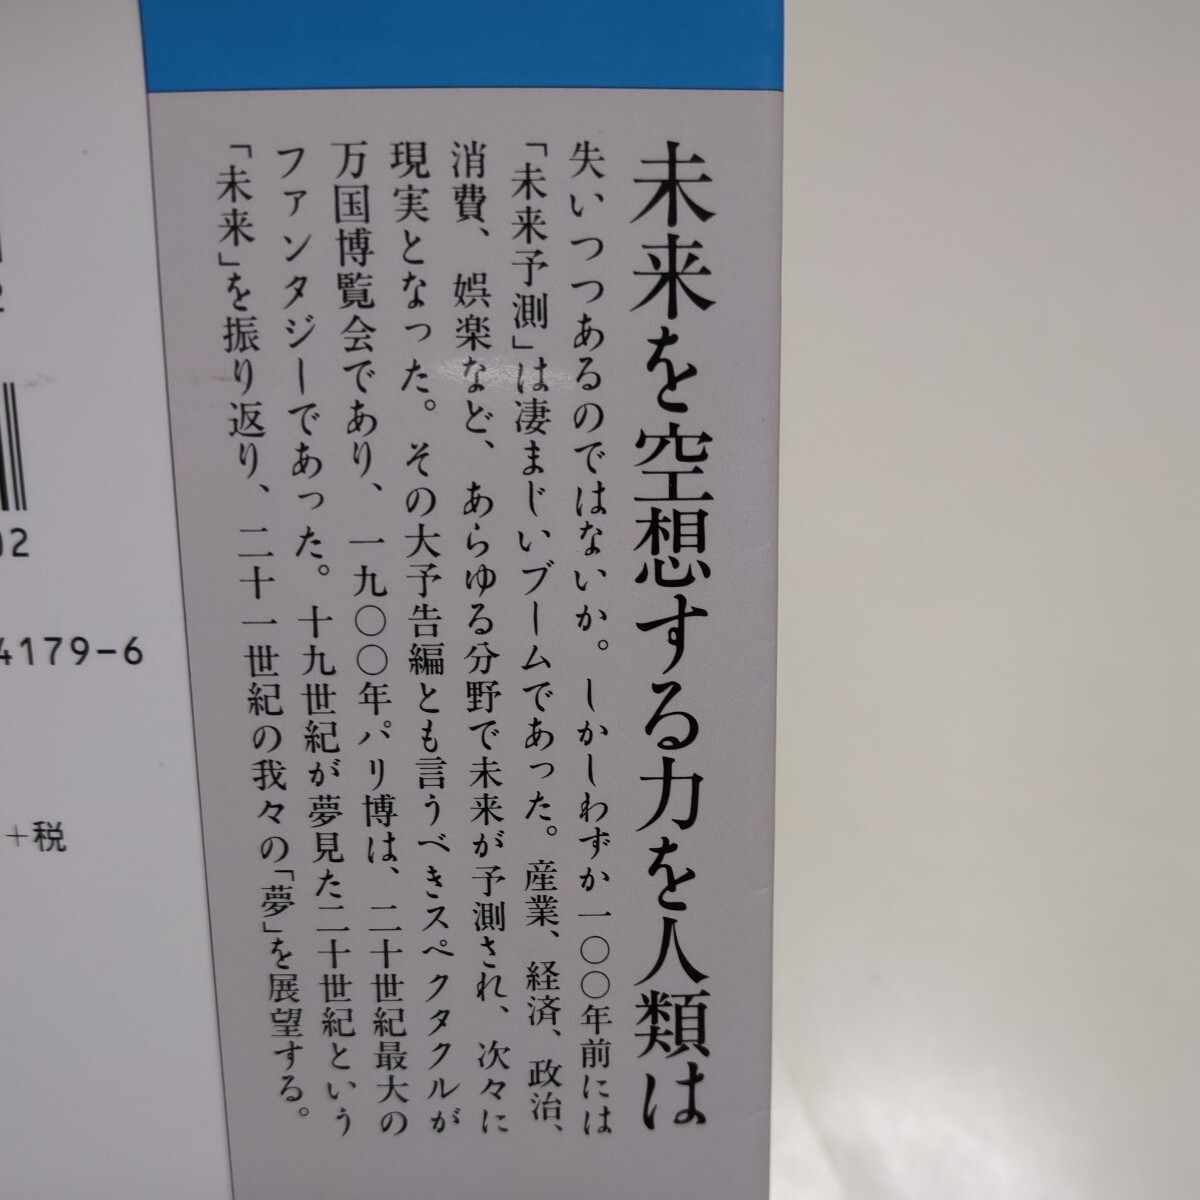 未来を空想する力を人類は
失いつつあるのではないか。しかしわずか一〇〇年前には
「未来予測」は凄まじいブームであった。産業、経済、政治、
消費、娯楽など、あらゆる分野で未来が予測され、次々に
現実となった。その大予告編とも言うべきスペクタクルが
万国博覧会であり、一九〇〇年パリ博は、二十世紀最大の
ファンタジーであった。十九世紀が夢見た二十世紀という
「未来」を振り返り、二十一世紀の我々の「夢」を展望する。
2
02
4179-6
+税